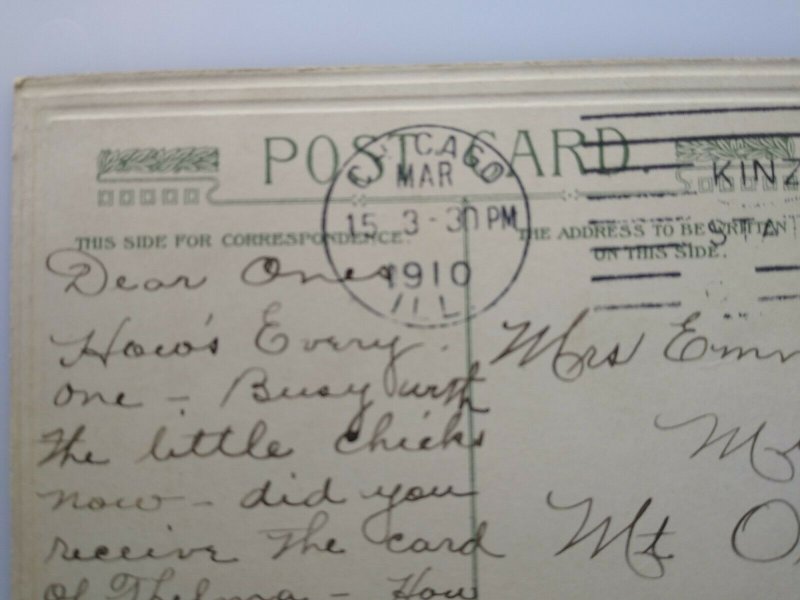 POST CARD
CHICAGO
MAR
15 3-30 PM
1910
ILL
THIS SIDE FOR CORRESPONDENCE.
THE ADDRESS TO BE WRITTEN
ON THIS SIDE.
Dear Ones
How's Every.
one - Busy with
the little chicks
now - did you
receive the card
of Thelma - How
Mrs
Mt